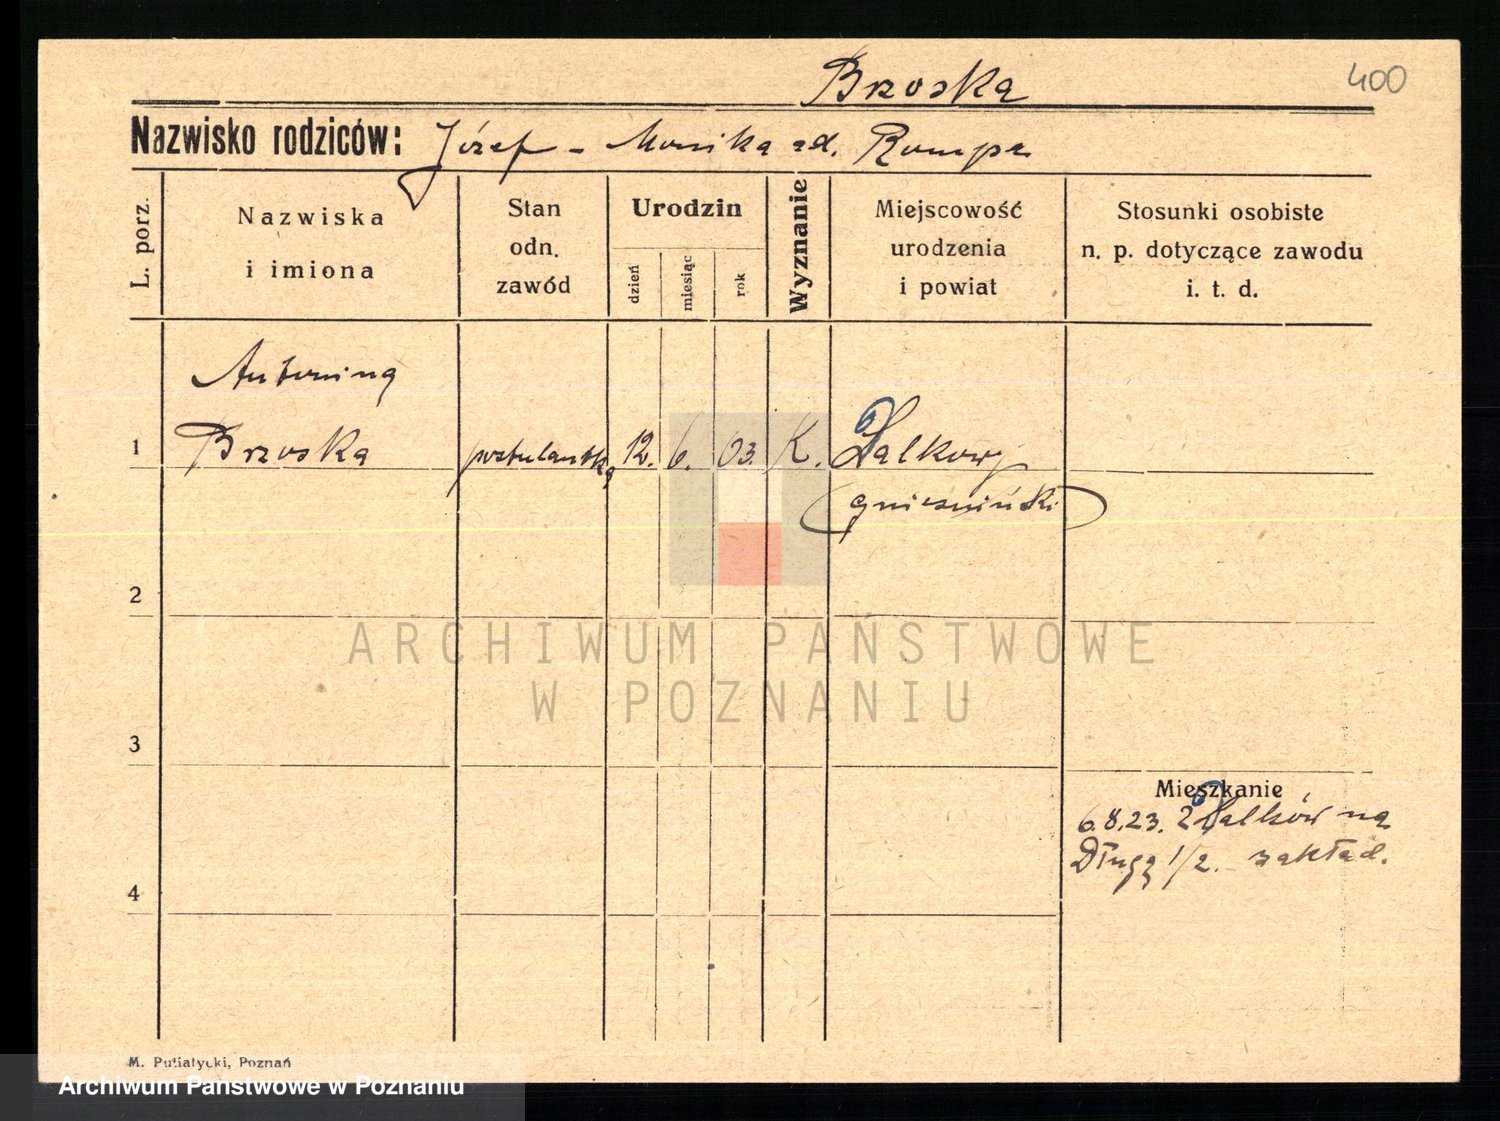 Brzoska
400
Nazwisko rodziców: Józef - Monika zd. Rumpa
L. porz.
Nazwiska
i imiona
Stan
odn.
zawód
Urodzin
dzień
miesiąc
rok
Wyznanie
Miejscowość
urodzenia
i powiat
Stosunki osobiste
n. p. dotyczące zawodu
i. t. d.
Antonina
1 Brzoska postulantka 12. 6. 03. K. Dalkowy
gnieźnieński
2
ARCHIWUM PAŃSTWOWE
W POZNANIU
3
Mieszkanie
6.8.23. z Dalków na
Długą 1/2. zakład.
4
M. Putiatycki, Poznań
Archiwum Państwowe w Poznaniu